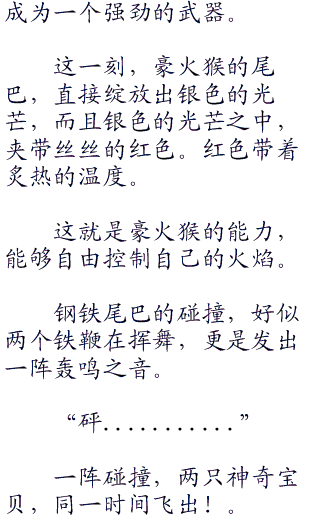 成为一个强劲的武器。
这一刻，豪火猴的尾
巴，直接绽放出银色的光
芒，而且银色的光芒之中，
夹带丝丝的红色。红色带着
炙热的温度。
这就是豪火猴的能力，
能够自由控制自己的火焰。
钢铁尾巴的碰撞，好似
两个铁鞭在挥舞，更是发出
一阵轰鸣之音。
“砰...........”
一阵碰撞，两只神奇宝
贝，同一时间飞出！。